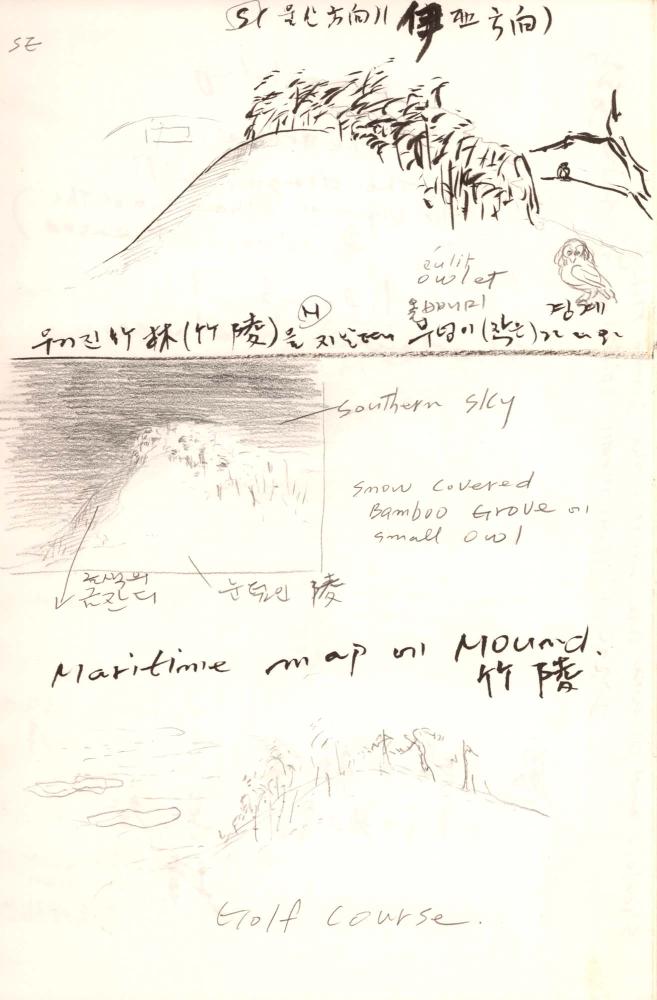 SE
方向) 伊 方向)
owlet
올빼미
경계
N
우거진 竹林(竹陵)을 지날때 부엉이(작은)
southern sky
snow covered
Bamboo Grove 에
small owl
금잔디
눈덮인 陵
Maritime map 에 Mound.
竹陵
Golf course.